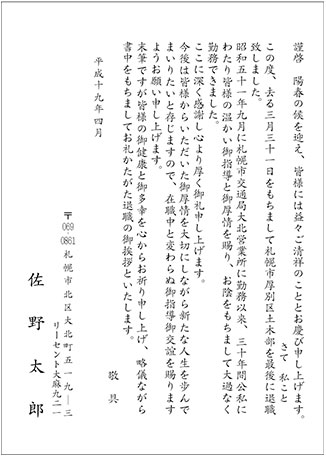 謹啓　陽春の候を迎え、皆様には益々ご清祥のこととお慶び申し上げます。
さて　私こと
この度、去る三月三十一日をもちまして札幌市厚別区土木部を最後に退職
致しました。
昭和五十一年九月に札幌市交通局大北営業所に勤務以来、三十年間公私に
わたり皆様の温かい御指導と御厚情を賜り、お陰をもちまして大過なく
勤務できました。
ここに深く感謝し心より厚く御礼申し上げます。
今後は皆様からいただいた御厚情を大切にしながら新たな人生を歩んで
まいりたいと存じますので、在職中と変わらぬ御指導御交誼を賜ります
ようお願い申し上げます。
末筆ですが皆様の御健康と御多幸を心からお祈り申し上げ、略儀ながら
書中をもちましてお礼かたがた退職の御挨拶といたします。
敬具
平成十九年四月
〒069-0861
札幌市北区大北町五一九―三
リーセント大麻九二一
佐野太郎